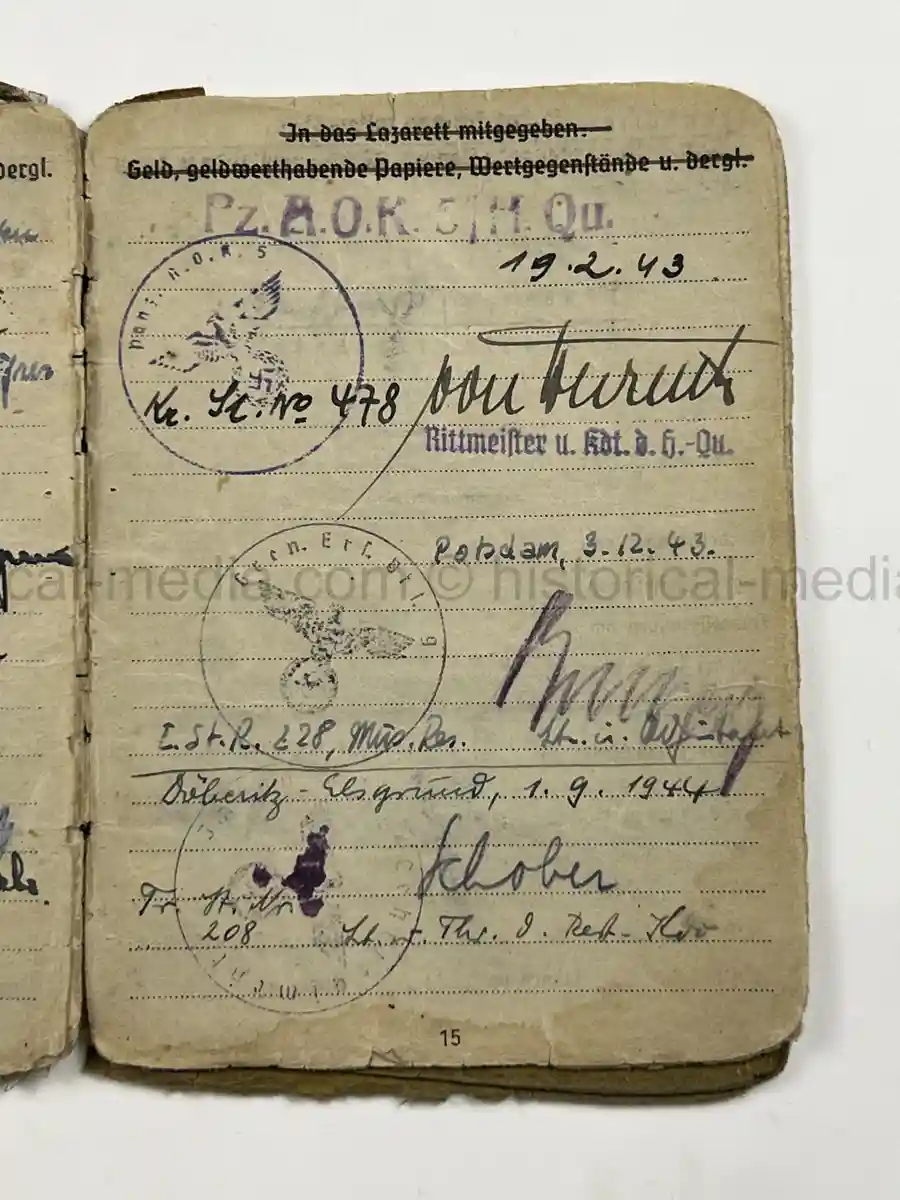 dergl.
In das Lazarett mitgegeben:
Geld, geldwerthabende Papiere, Wertgegenstände u. dergl.
Pz. A.O.K. 5/H. Qu.
Panz. A.O.K. 5
19.2.43
Kr. St. No 478 von
Rittmeister u. Kdt. d. H.-Qu.
Gren. Ers. Btl. 9
Potsdam, 3.12.43.
historical-media.com © historical-media
E. St. R. 228, Lt. u. Adjutant
Döberitz-Elsgrund, 1.9.1944
Schober
Tr. St. Nr.
208 Lt. u.
15